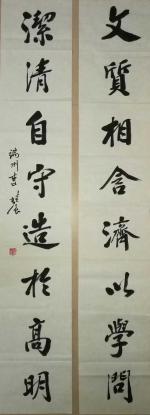 文質相含濟以學問
潔清自守造於高明